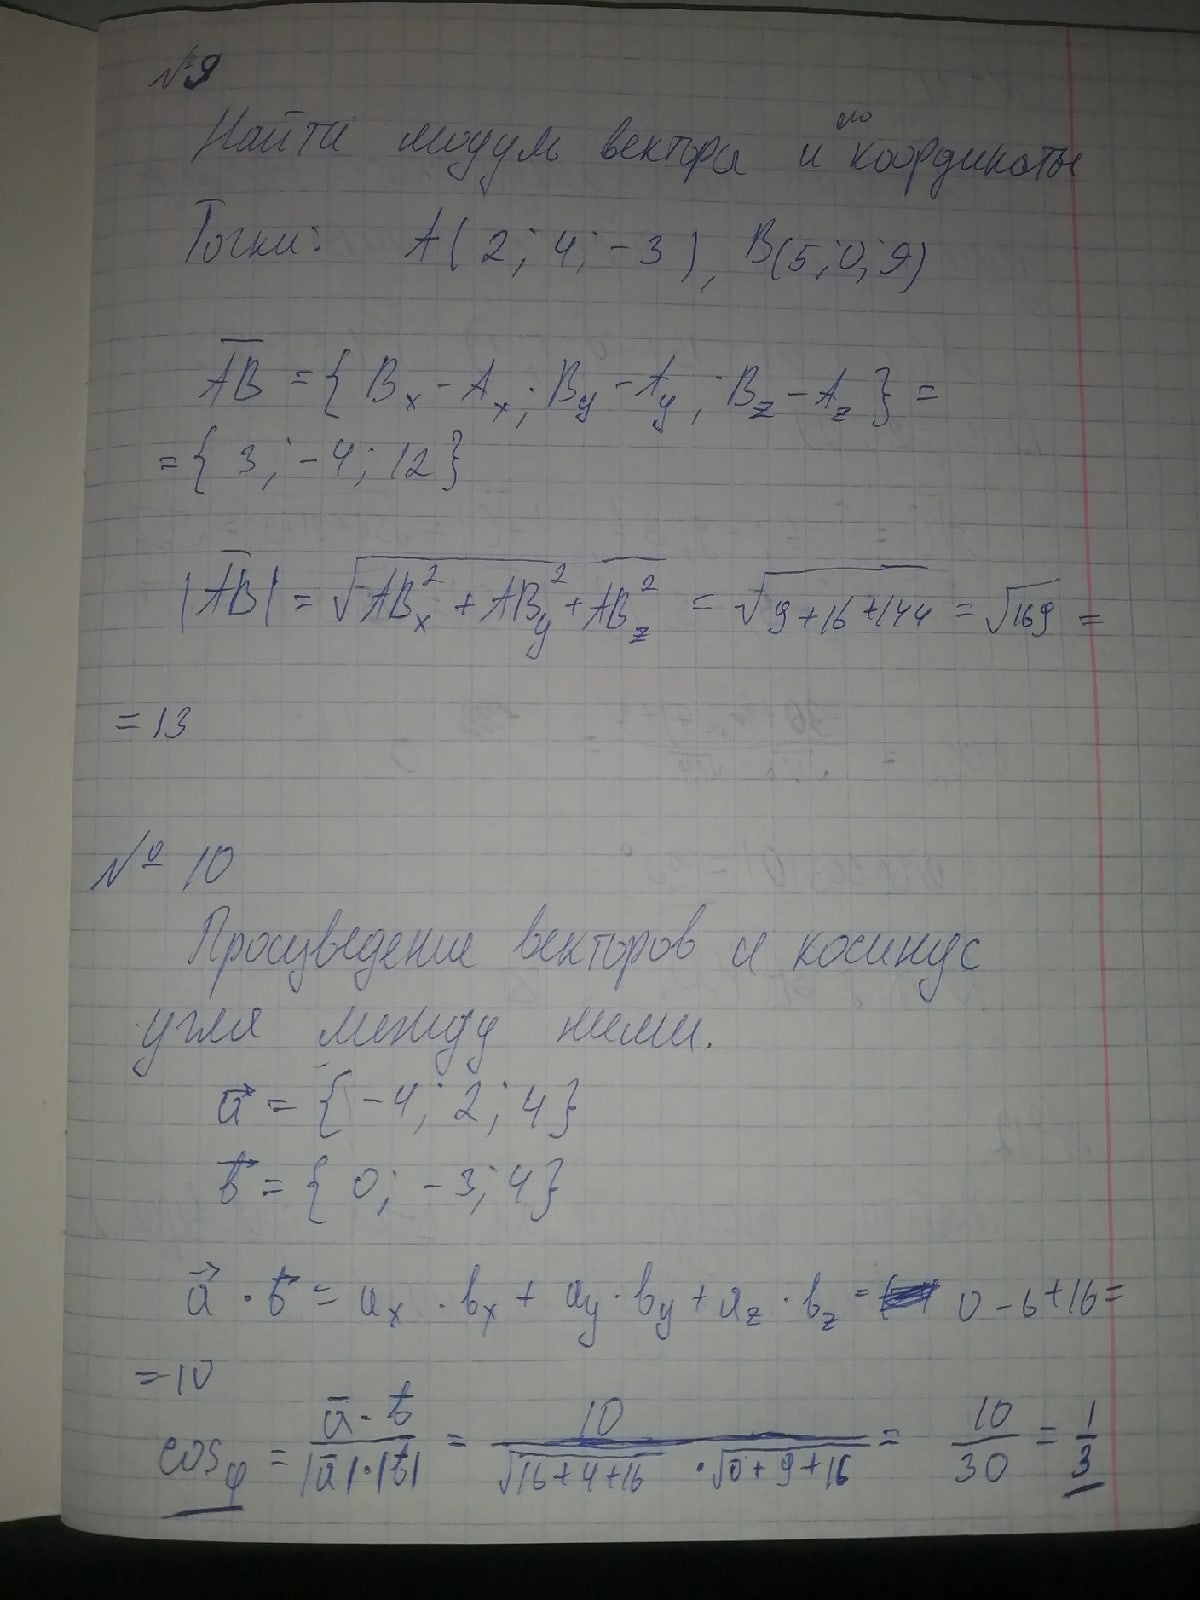 №9
Найти модуль вектора и его координаты
Точки: A(2; 4; -3), B(5; 0; 9)
AB = { Bx - Ax; By - Ay; Bz - Az } =
= { 3; -4; 12 }
|AB| = √(ABx² + ABy² + ABz²) = √(9+16+144) = √169 =
= 13
№ 10
Произведение векторов и косинус
угла между ними.
a⃗ = {-4; 2; 4}
b⃗ = { 0; -3; 4}
a⃗ · b⃗ = ax · bx + ay · by + az · bz = 0 - 6 + 16 =
= 10
cos φ = (a · b) / (|a| · |b|) = 10 / (√(16+4+16) · √(0+9+16)) = 10/30 = 1/3